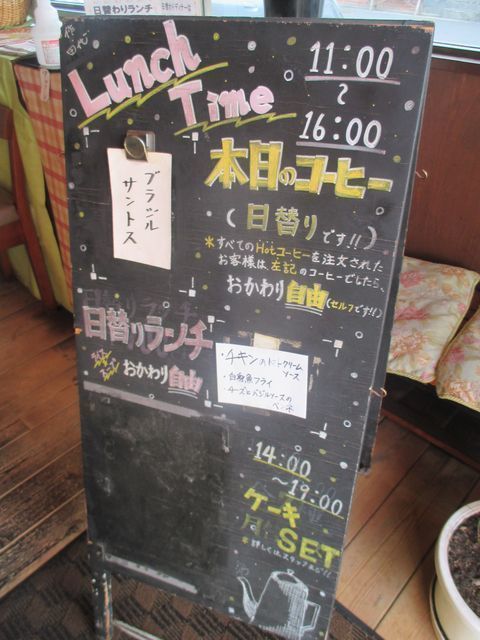 日替わりランチ
Lunch
Time
11:00
~
16:00
本日のコーヒー
(日替りです!!)
ブラジル
サントス
*すべてのHotコーヒーを注文された
お客様は、左記のコーヒーでしたら、
おかわり自由(セルフです!!)
日替りランチ
おかわり自由
・チキンのトマトクリーム
ソース
・白身魚フライ
・チーズとバジルソースの
ペンネ
14:00
~19:00
ケーキ
SET
*詳しくは、スタッフまで!!